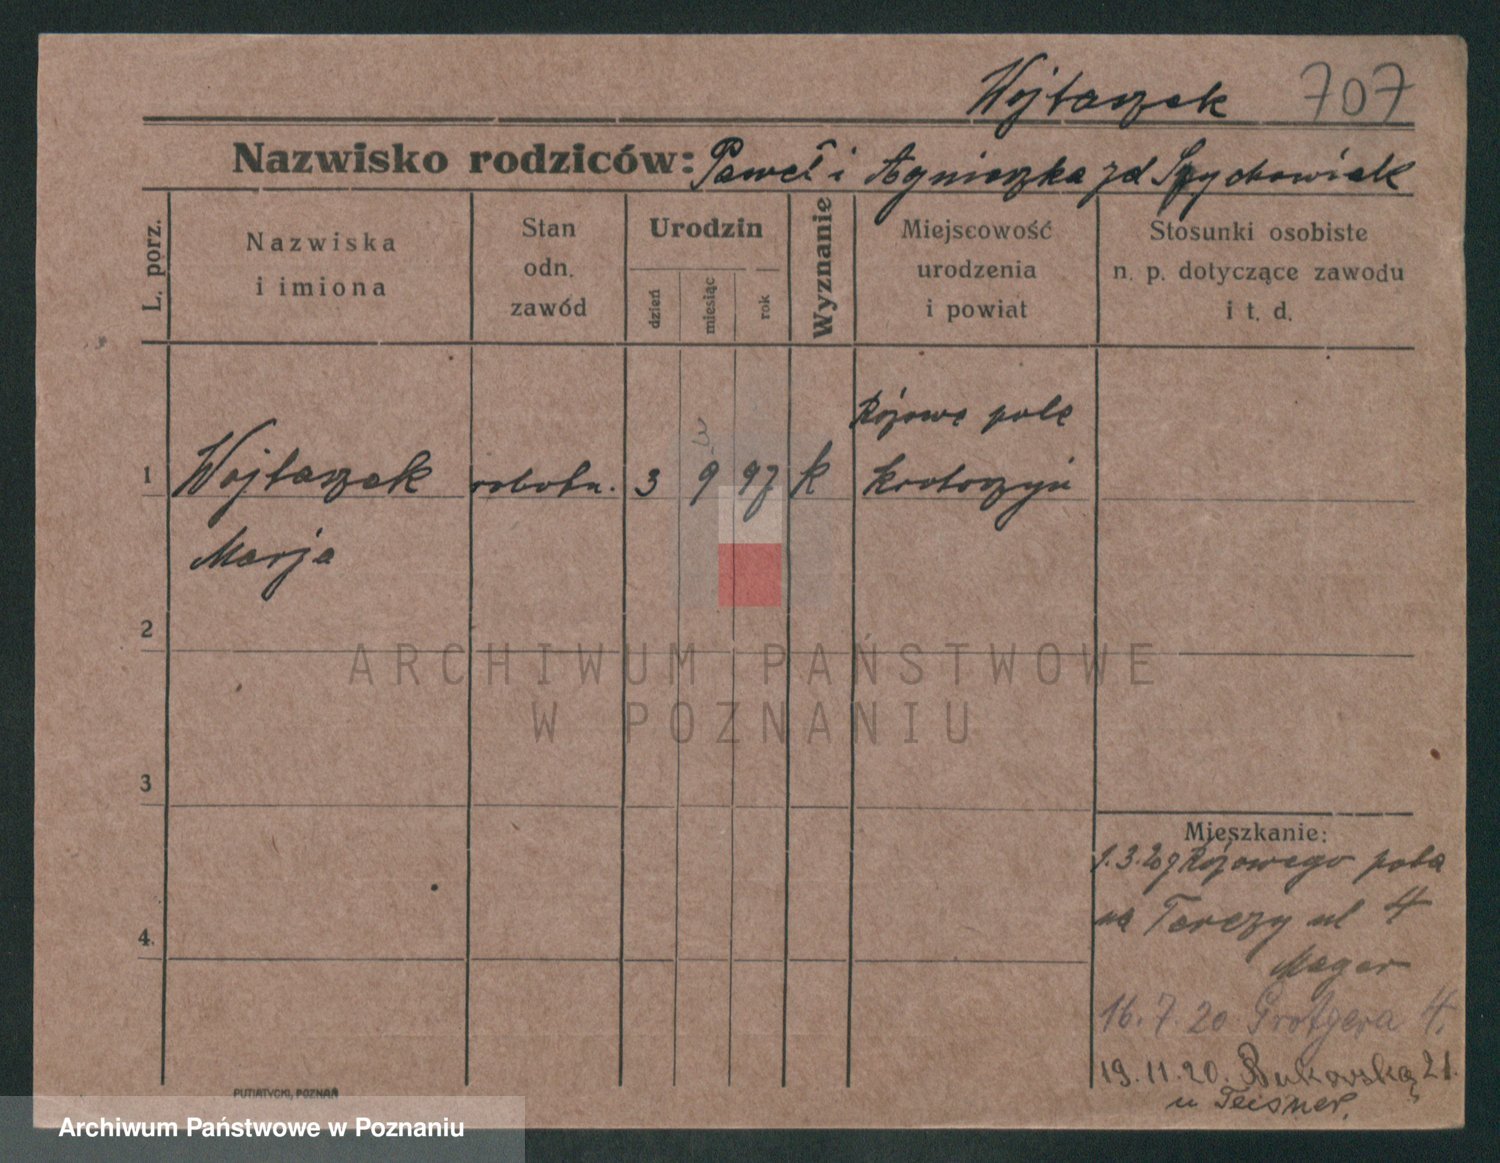 Wojtaszak 707
Nazwisko rodziców: Paweł i Agnieszka zd Spychowiak
L. porz.
Nazwiska
i imiona
Stan
odn.
zawód
Urodzin
dzień
miesiąc
rok
Wyznanie
Miejscowość
urodzenia
i powiat
Stosunki osobiste
n. p. dotyczące zawodu
i t. d.
Rójowe pole
1 Wojtaszak robotn. 3 9 97 k Krotoszyn
Marja
2
3
4.
ARCHIWUM PAŃSTWOWE
W POZNANIU
Mieszkanie:
1.3.20 z Rójowego pola
na Tarczy ul 4
Mager
16.7.20 4.
19.11.20. Bukowska 21.
u Teisner.
PUTIATYCKI, POZNAŃ
Archiwum Państwowe w Poznaniu